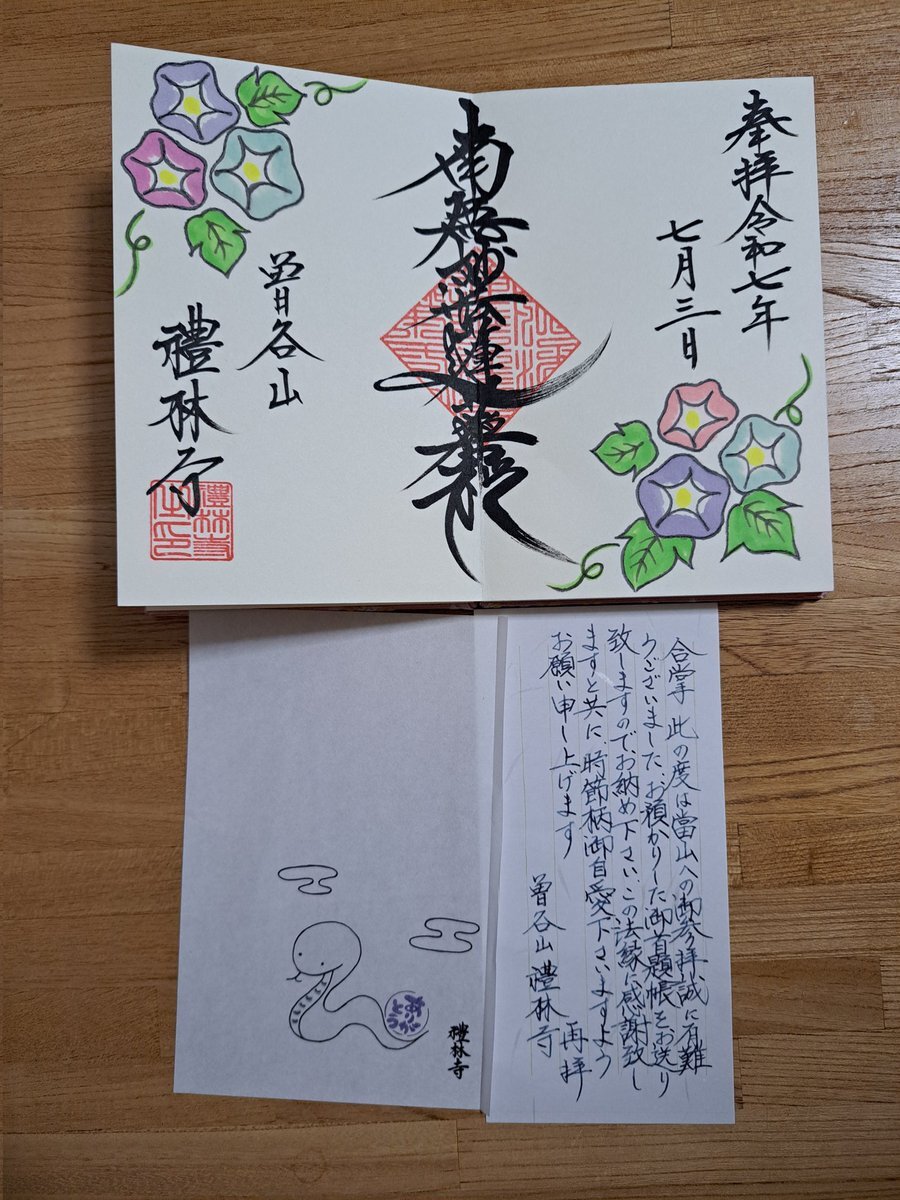 奉拝令和七年
七月三日
南無妙法蓮華経
曽谷山
禮林寺
合掌 此の度は當山への御参り拝誠に有難
うございました、お預かりした御首題帳をお送り
致しますので、お納め下さい、この法縁に感謝致し
ますと共に、時節柄御自愛下さいますよう
お願い申し上げます
再拝
曽谷山禮林寺
ありがとう
禮林寺